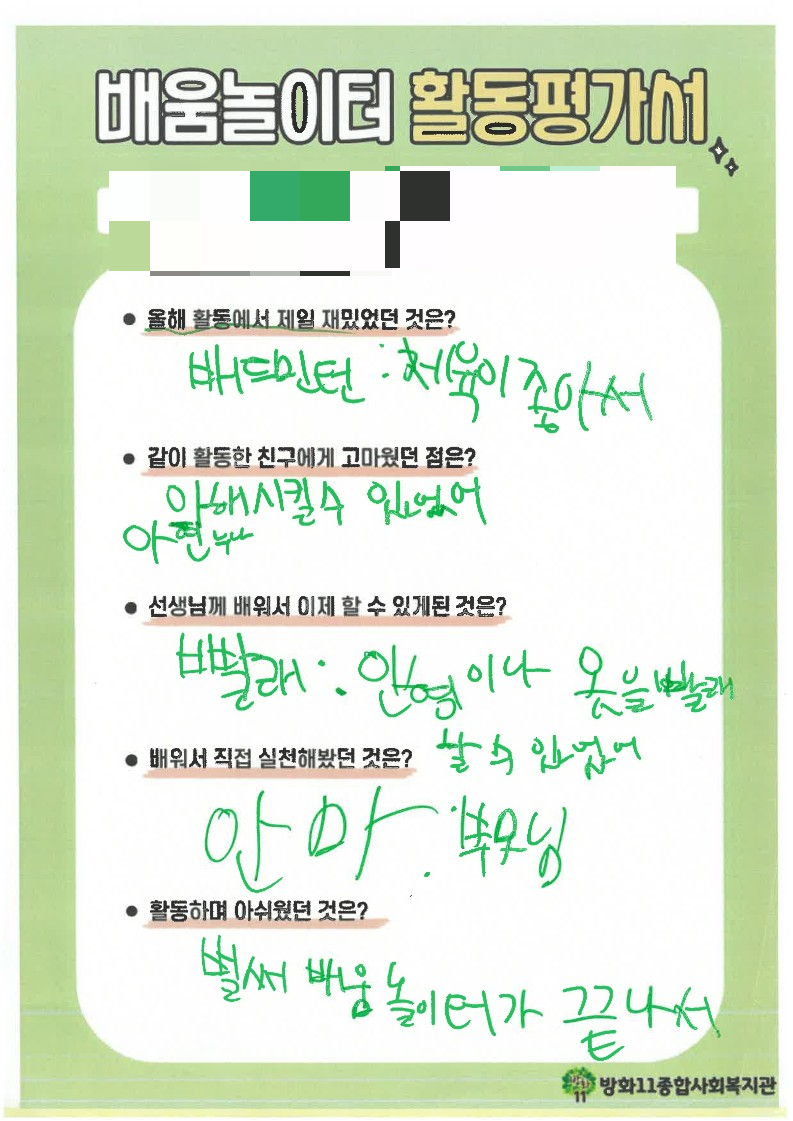 배움놀이터 활동평가서
● 올해 활동에서 제일 재밌었던 것은?
배드민턴 : 체육이 좋아서
● 같이 활동한 친구에게 고마웠던 점은?
안해시킬수 있었어
아현누나
● 선생님께 배워서 이제 할 수 있게된 것은?
빨래 : 인형이나 옷을 빨래
할 수 있었어
● 배워서 직접 실천해봤던 것은?
안마 : 부모님
● 활동하며 아쉬웠던 것은?
벌써 배움놀이터가 끝나서
방화11종합사회복지관